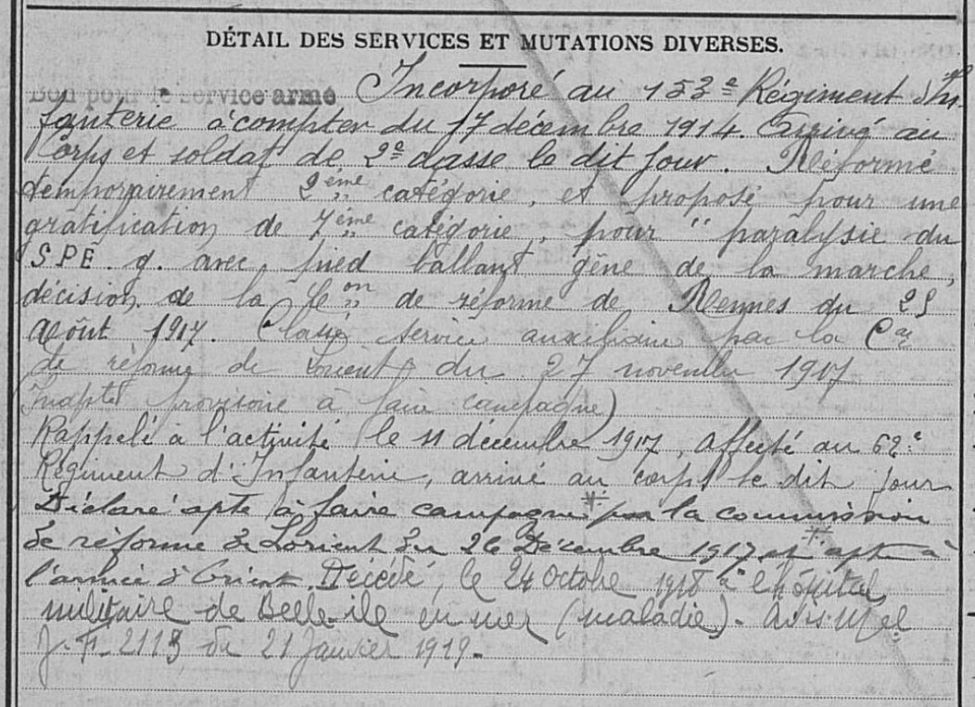 DÉTAIL DES SERVICES ET MUTATIONS DIVERSES.
Bon pour le service armé Incorporé au 153e Régiment d'In-
fanterie à compter du 17 décembre 1914. Arrivé au
Corps et soldat de 2e classe le dit jour. Réformé
temporairement 2ème catégorie, et proposé pour une
gratification de 7ème catégorie, pour "paralysie du
S.P.E. g. avec pied ballant gêne de la marche,
décision de la Con de réforme de Rennes du 25
Août 1917. Classé service auxiliaire par la Con
de réforme de Lorient du 27 novembre 1917
(Inapte provisoire à faire campagne)
Rappelé à l'activité le 11 décembre 1917, affecté au 62e
Régiment d'Infanterie, arrivé au corps le dit jour
Déclaré apte à faire campagne par la commission
de réforme de Lorient du 26 Décembre 1917 et apte à
l'armée d'Orient Décédé, le 24 Octobre 1918 à l'hôpital
militaire de Belle-ile en mer (maladie). Avis
J.F. 2113 du 21 Janvier 1919.